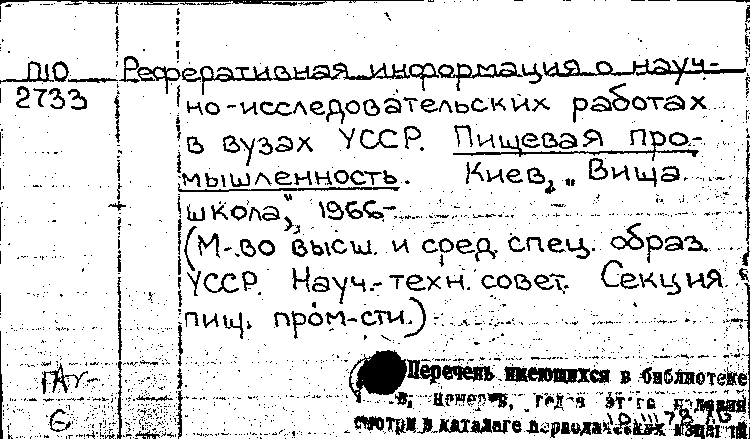 П10 Реферативная информация о науч-
2733 но-исследовательских работах
в вузах УССР. Пищевая про-
мышленность. Киев, „Вища
школа", 1966-
(М-во высш. и сред. спец. образ.
УССР. Науч.-техн. совет. Секция
пищ. пром-сти.)
Перечень имеющихся в библиотеке
смотри в каталоге периодических изданий